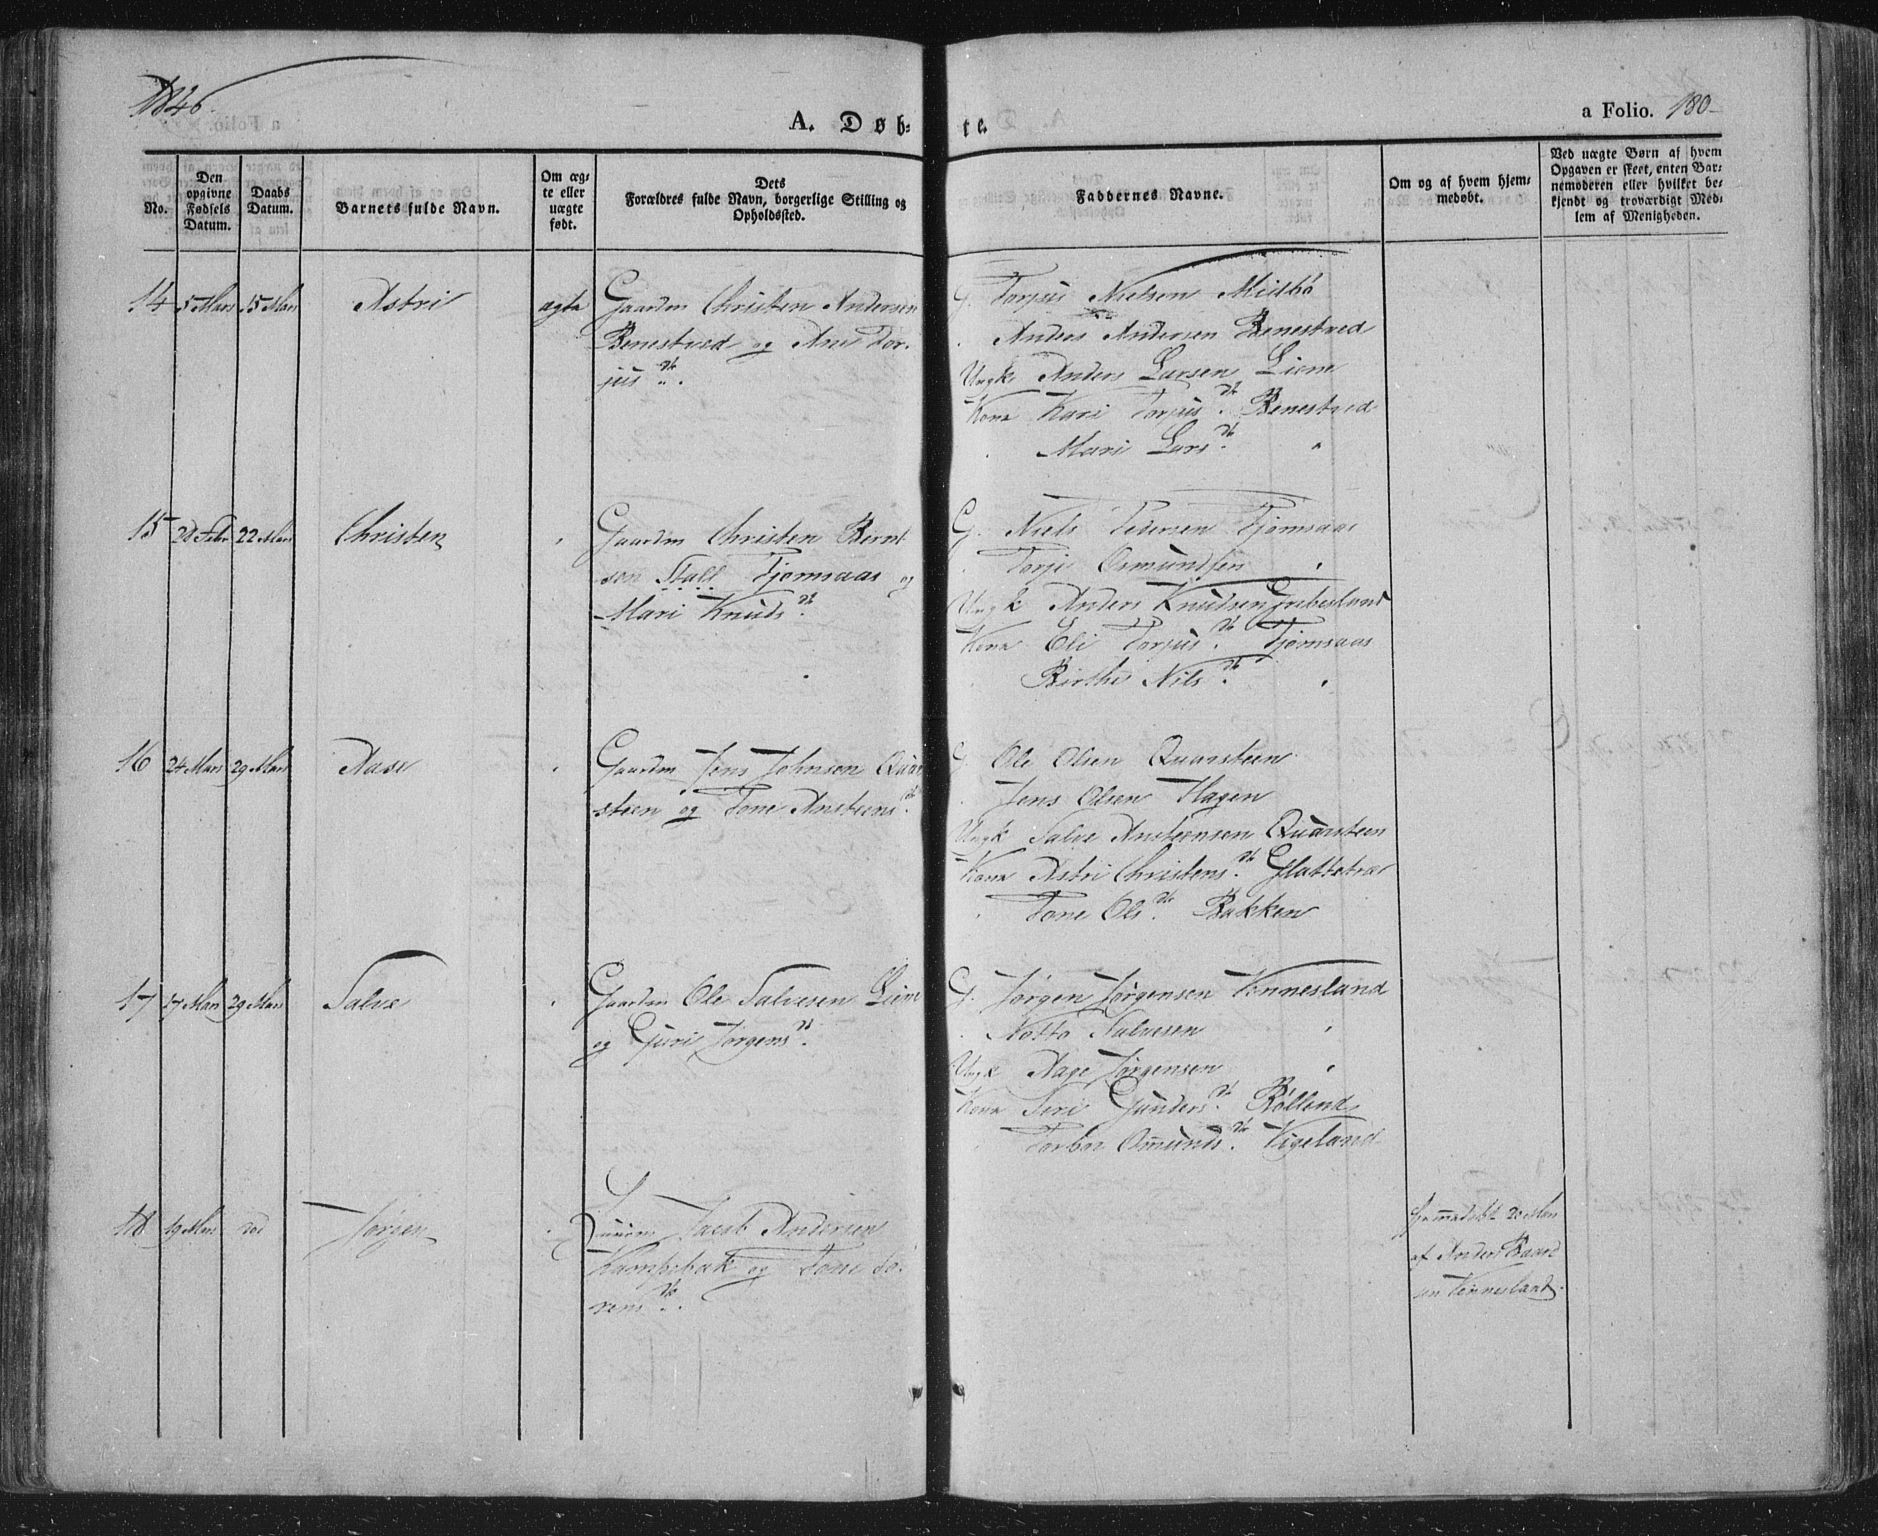 1846.
A. Døb-
te.
a Folio. 180-
No.
Den opgivne Fødsels Datum.
Daabs Datum.
Barnets fulde Navn.
Om ægte eller uægte født.
Dets
Forældres fulde Navn, borgerlige Stilling og
Opholdssted.
Faddernes Navne.
Om og af hvem hjem-
medøbt.
Ved uægte Børn af hvem
Opgaven er skeet, enten Bar-
nemoderen eller hvilket be-
kjendt og troværdigt Med-
lem af Menigheden.
14 5 Mars 15 Mars Astri ægte
Gaardm Christen Andersen
Benestved og Ane Tor-
jus Dt.
G. Torjus Nielsen
Anders Andersen Benestved
Ungk Anders Larsen Liene
Kone Kari Torjus Dt. Benestved
Mari Lars Dt. "
15 28 Febr 22 Mars Christen
Gaardm Christen Bernt
sen Stall Tjomsaas og
Mari Knuds Dt.
G. Niels Pedersen Tjomsaas
Torje Osmundsen "
Ungk Anders Knudsen Gribesland
Kone Eli Torjus Dt. Tjomsaas
Birthe Nils Dt. "
16 24 Mars 29 Mars Aase
Gaardm Jens Johnsen Quar
steen og Tone Ansteens Dt.
G. Ole Olsen Quarsteen
Jens Olsen Hagen
Ungk Salve Ansteensen Quarsteen
Kone Astri Christens Dt. Glattetræ
Tone Ols Dt. Bakken
17 17 Mars 29 Mars Salve
Gaardm Ole Salvesen Leim
og Guri Jørgens Dt.
G. Jørgen Jørgensen Kinnesland
Notto Salvesen "
Ungk Aage Jørgensen "
Kone Siri Gunders Dt.
Torbor Omunds Dt. Vigeland
18 19 Mars Jørgen
Jacob Andersen
og Tone Sø-
rens Dt.
hjemmedøbt 20 Mars
af Anders Baard
sen Kinnesland.